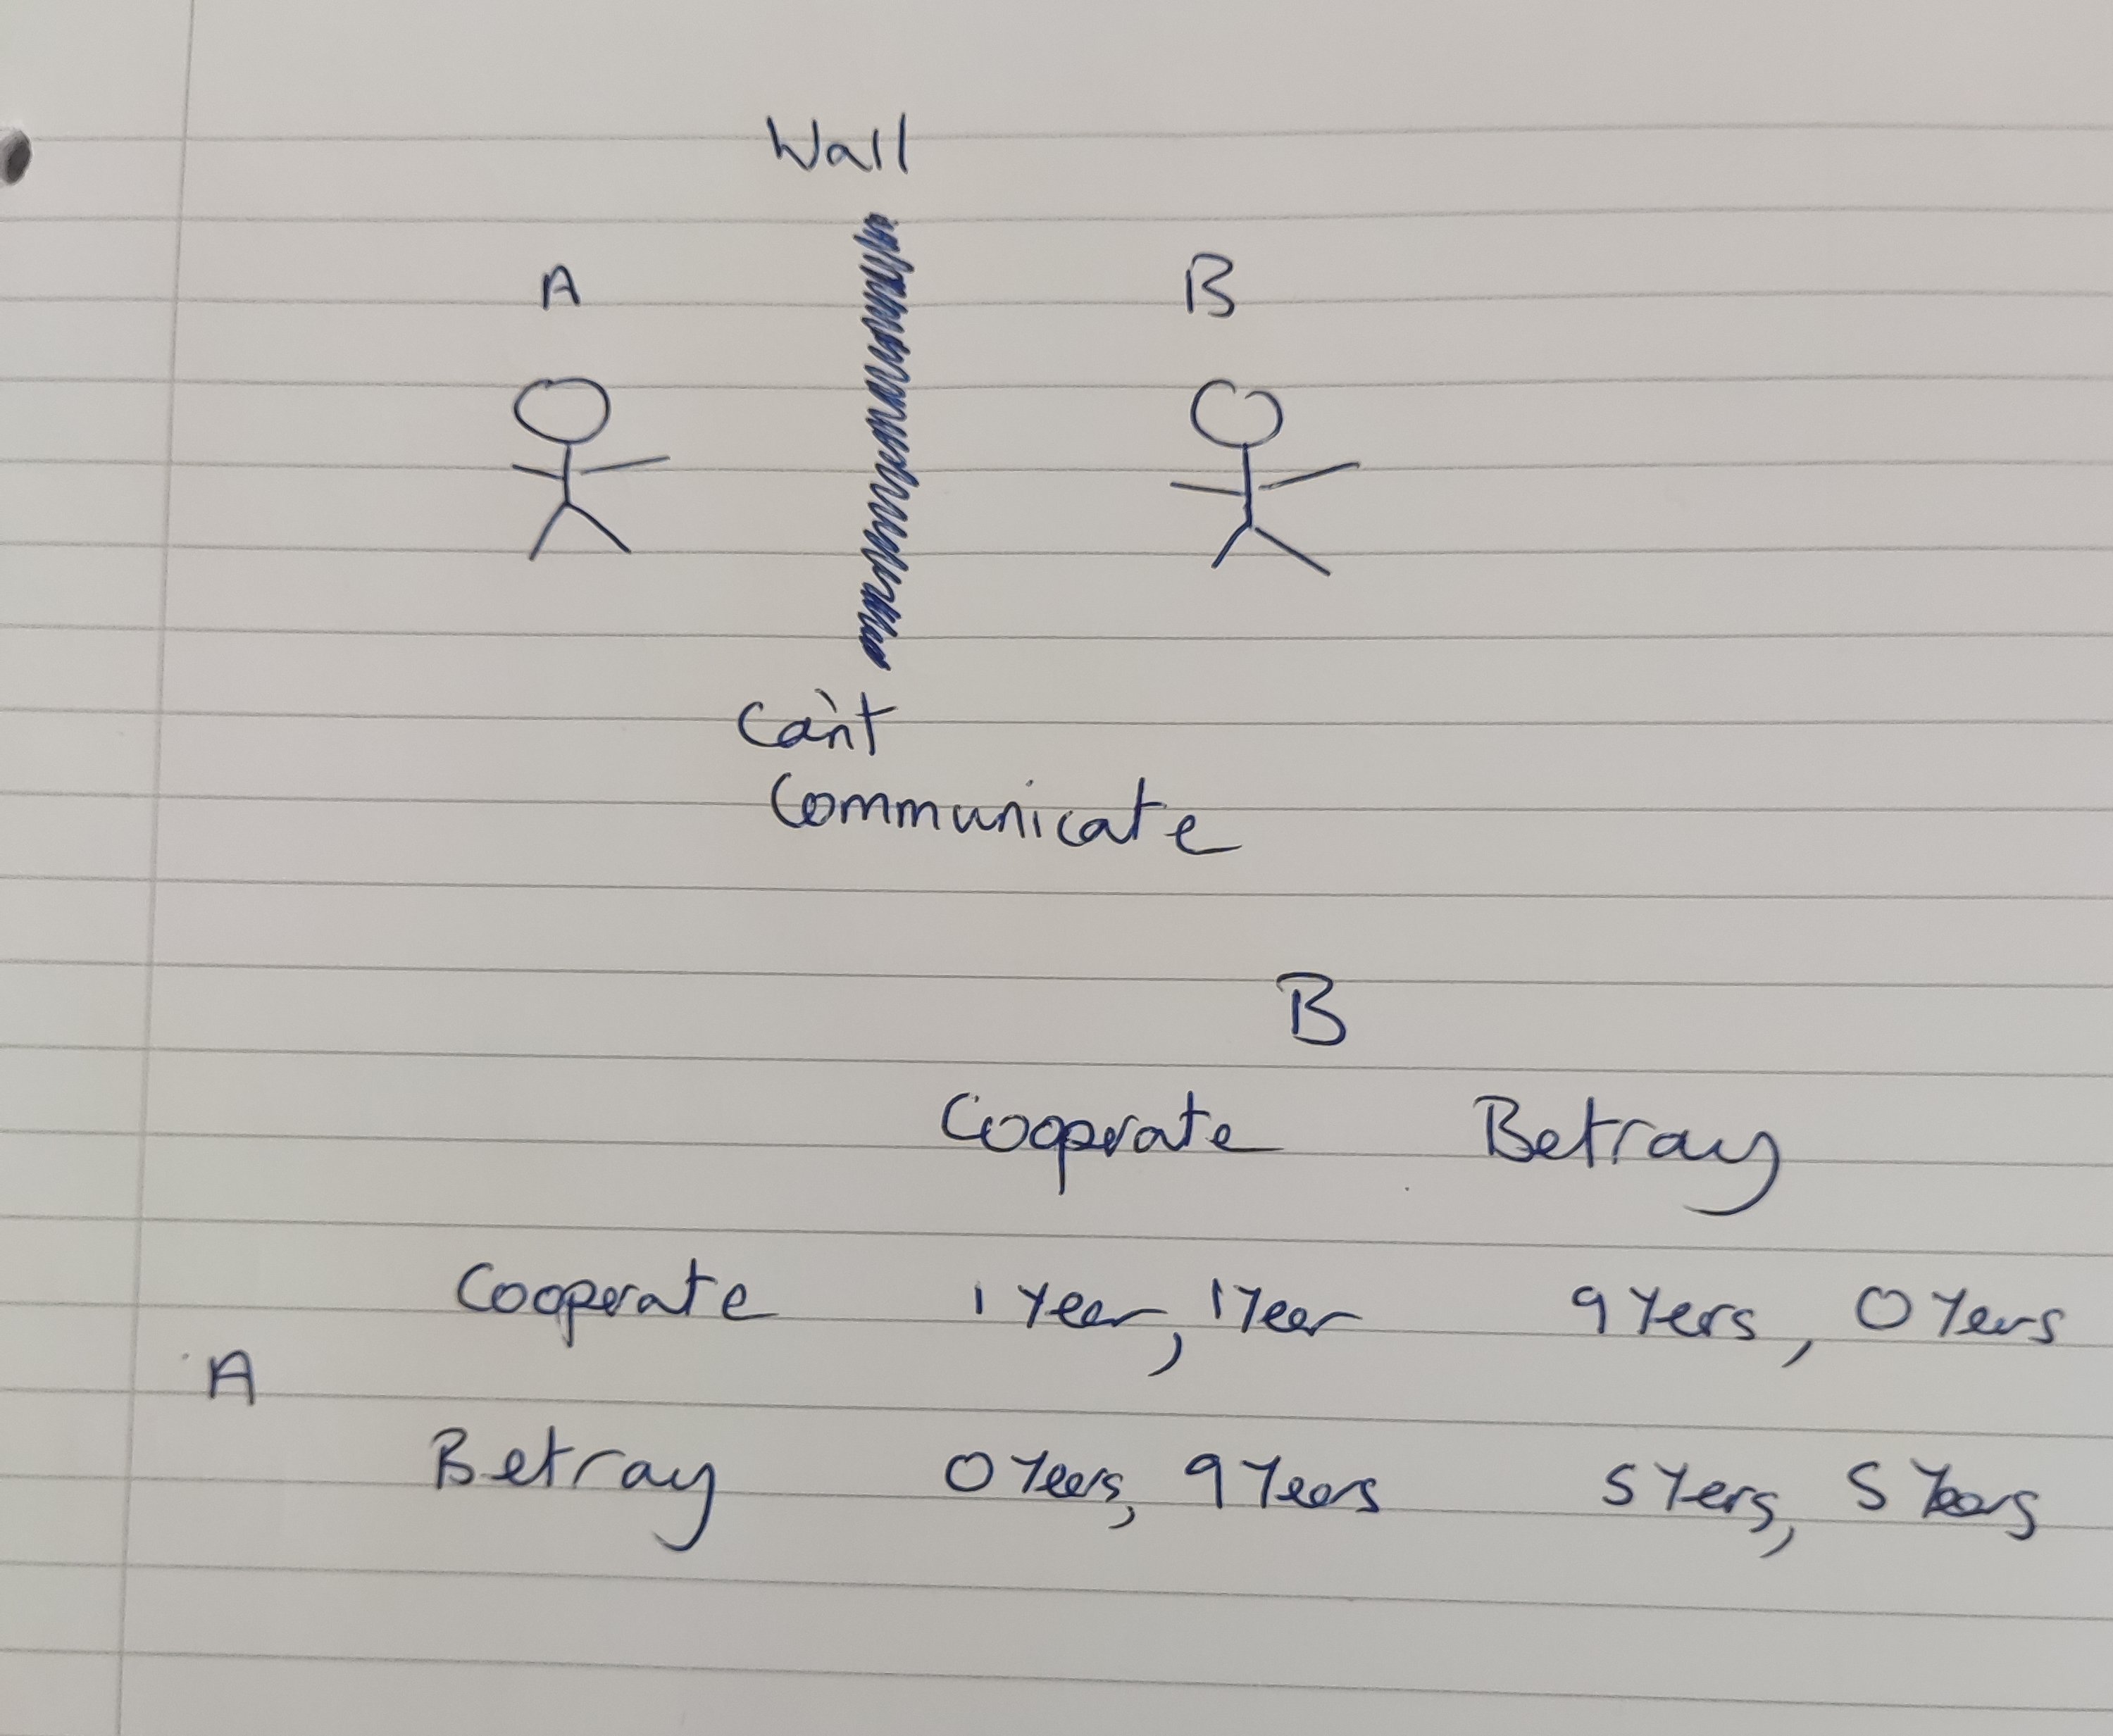 Wall
A B
Can't
Communicate
B
Cooperate Betray
Cooperate 1 Year, 1 Year 9 Yers, 0 Years
A
Betray 0 Years, 9 Years 5 Yers, 5 Years